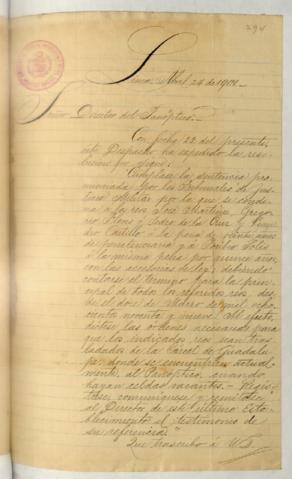 294
Lima, Abril 24 de 1901.
Señor Director del Panóptico.
Con fecha 22 del presente,
este Despacho ha expedido la reso
lución que sigue:
Cúmplase la sentencia pro
nunciada por los Tribunales de Jus
ticia Militar por la que se conde
na á los reos José Martínez, Grego
rio Llanos, Pedro de la Cruz y
Castillo á la pena de
de penitenciaría y á Solis
á la misma pena por quince años
con las accesorias de ley; debiendo
contarse el término para la prin
cipal de todos los referidos reos, des
de el doce de Marzo de mil ocho
cientos noventa y nueve. Al efecto,
dictese las órdenes necesarias para
que los indicados reos sean tras
ladados de la Carcel de Guadalu
pe donde se encuentran actual
mente al Panóptico, cuando
hayan celdas vacantes.- Regis
trese, comuníquese y remítase
al Director de este último Esta
blecimiento el testimonio de
su referencia."
Que trascribo á US.